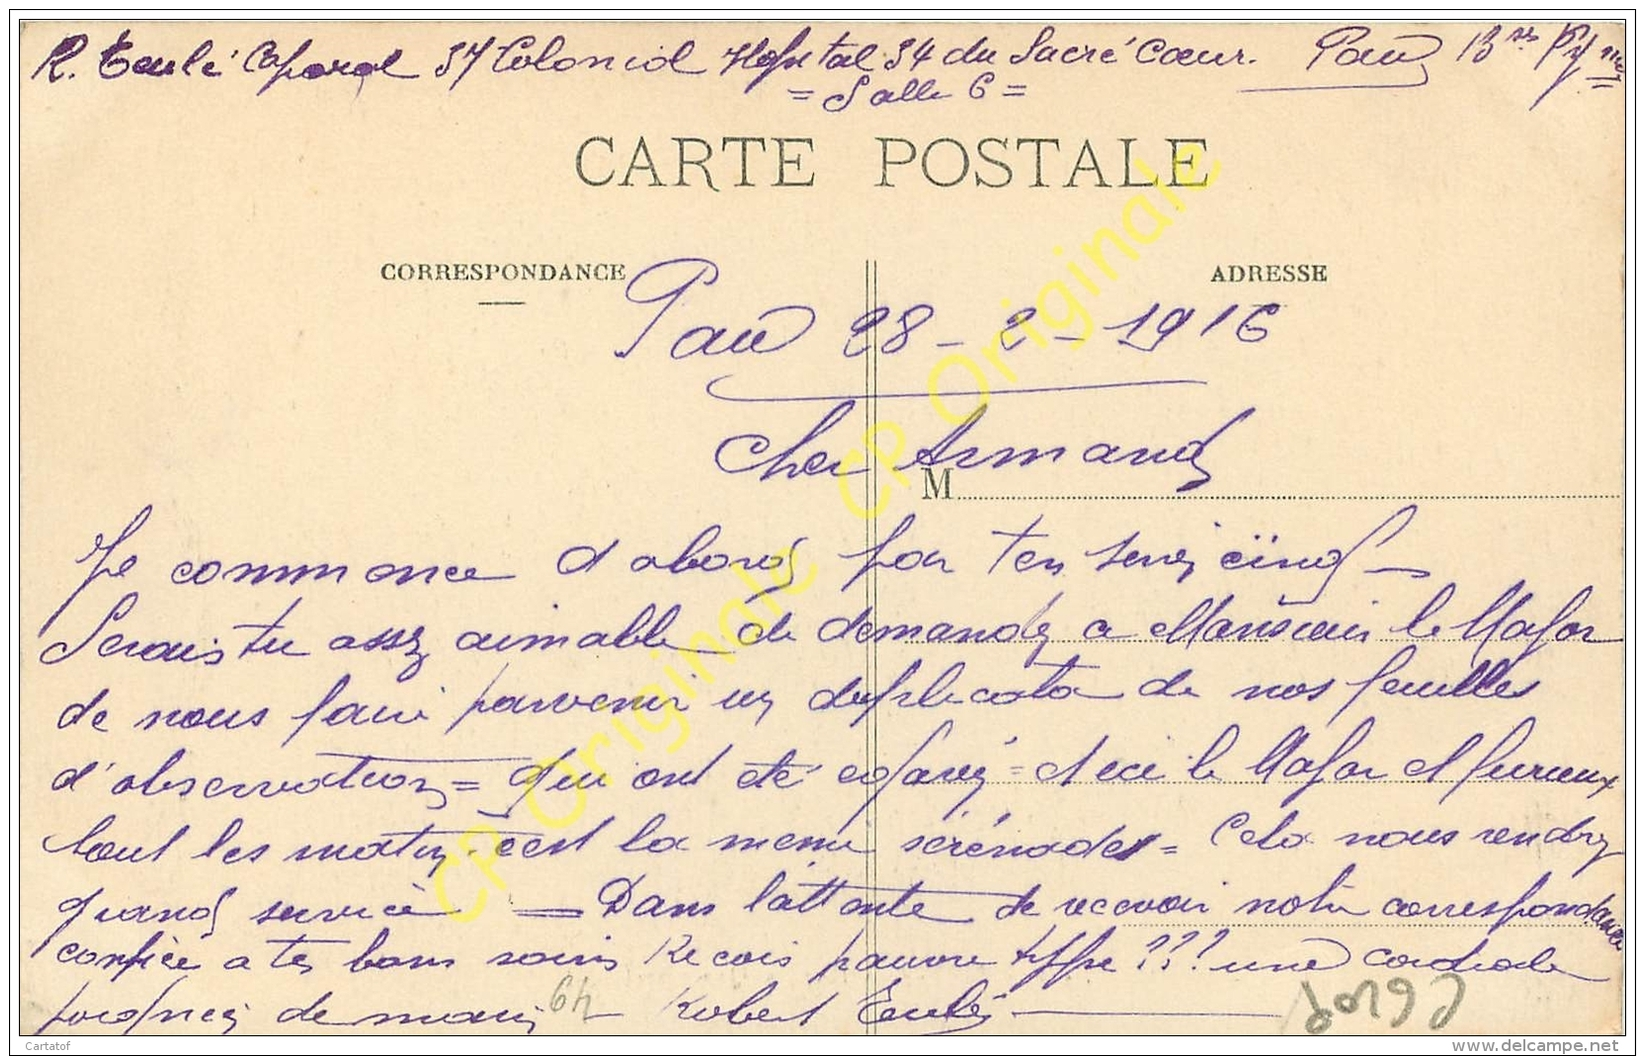 R. Teulé Caporal 37 Colonial Hopital 34 du Sacré Cœur. Pau Bses Pynées
= Salle 6 =
CARTE POSTALE
CORRESPONDANCE
ADRESSE
Pau 28-2-1916
Cher Armand
M
Je commence d'abord par t'en
Serais tu assez aimable de demandez a le Major
de nous faire parvenir un duplicata de nos feuilles
d'observation = qui ont été egarés = et ici le Major est furieux
tout les matin c'est la meme sérénades = Cela nous rendrez
grand service = Dans l'attente de recevoir notre correspondance
confiée a tes bons soins Recois pauvre type ??? une cordiale
poignée de mains Robert Teulé
64
CP Originale CP Originale CP Originale
Cartatof
delcampe.net